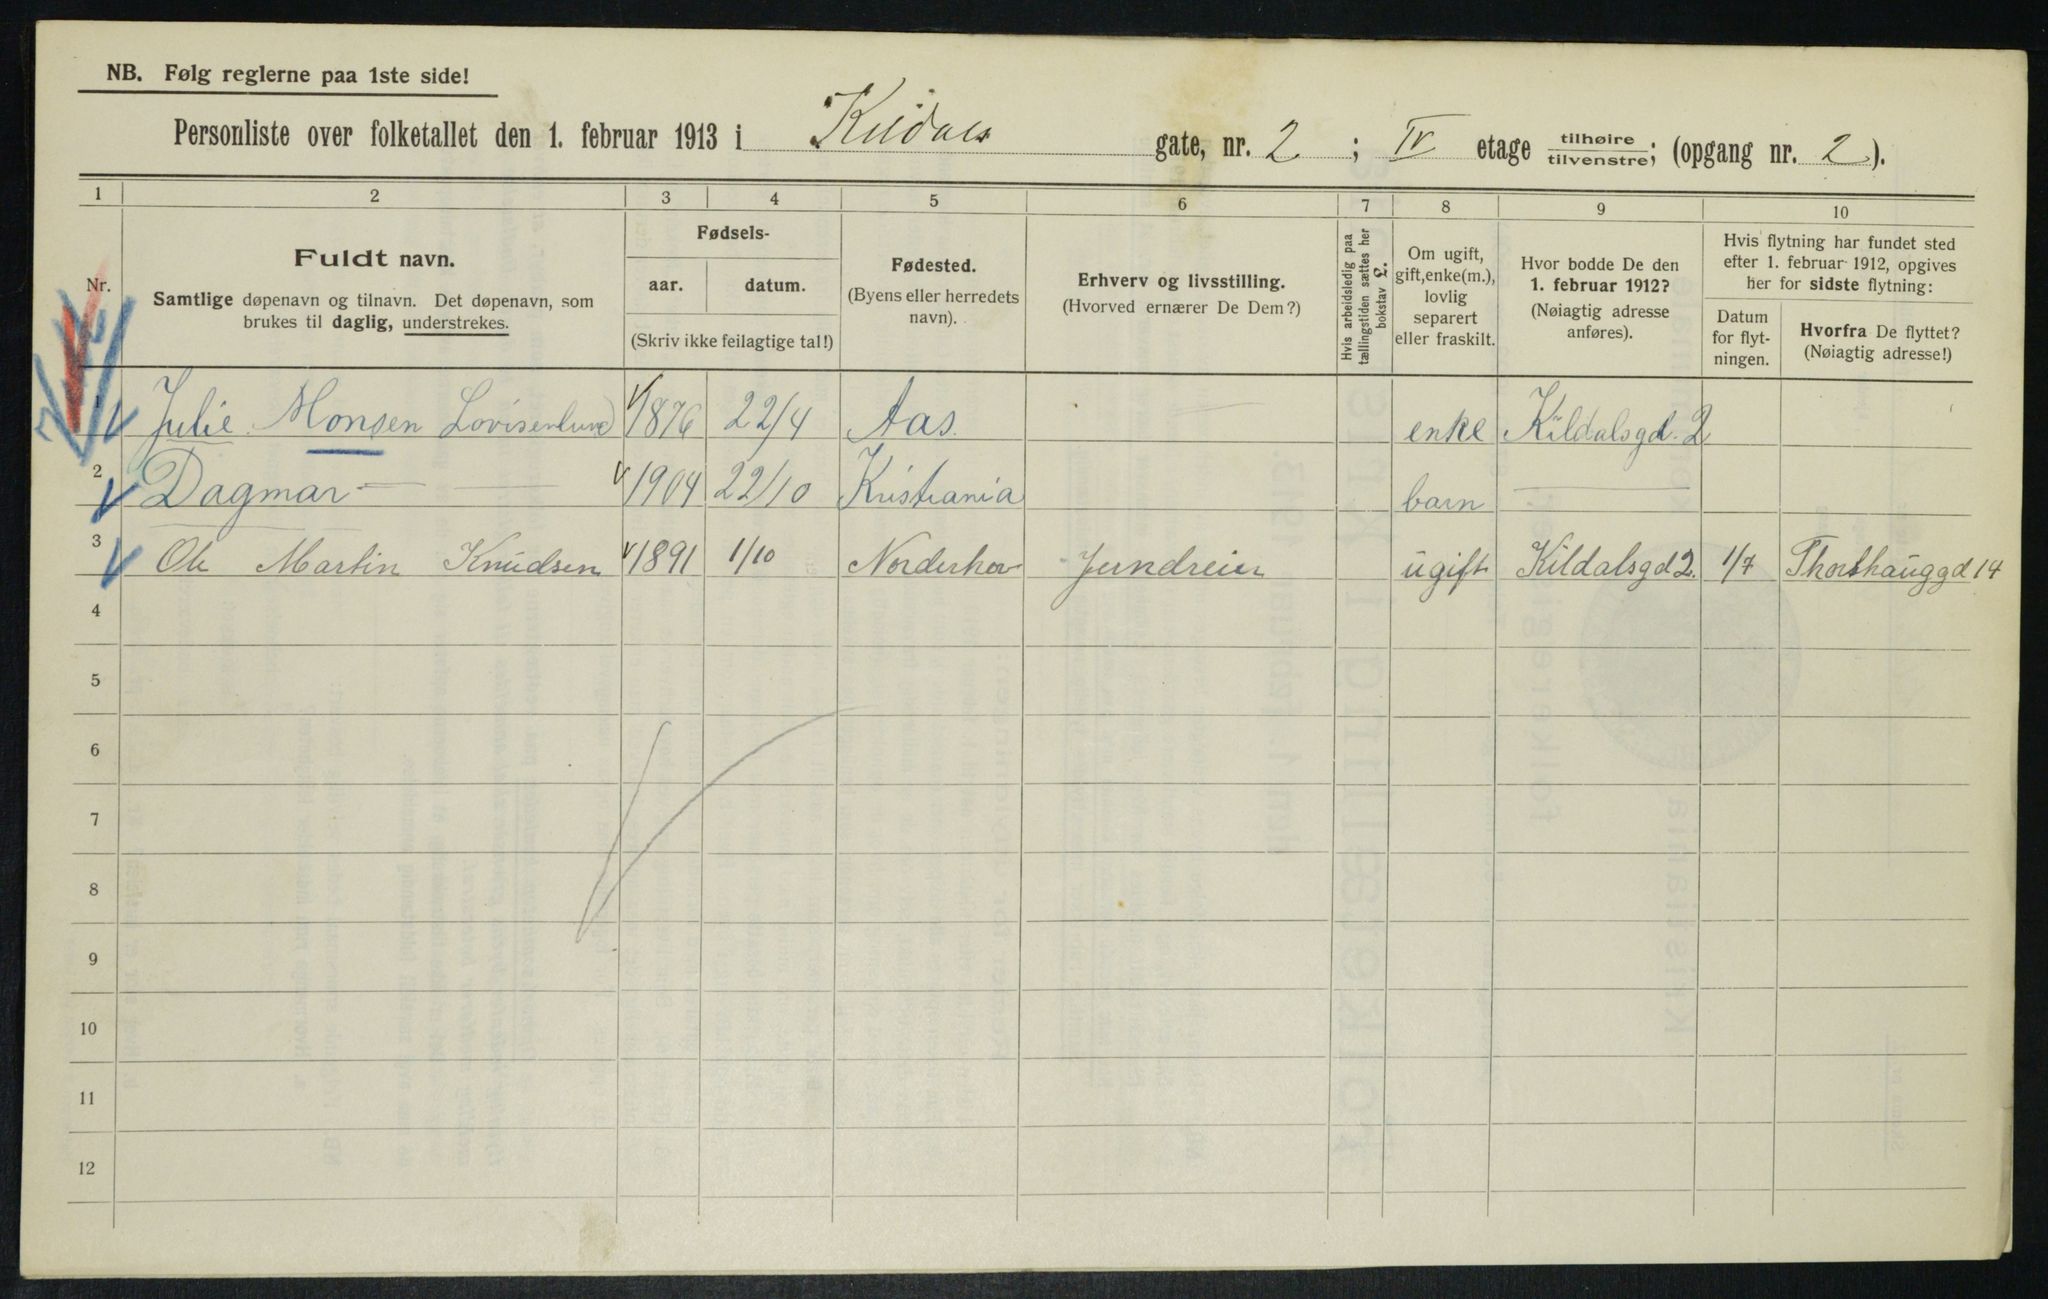 NB. Følg reglerne paa 1ste side!
Personliste over folketallet den 1. februar 1913 i Kildals gate, nr. 2 ; IV etage tilhøire tilvenstre; (opgang nr. 2 ).
1 2 3 4 5 6 7 8 9 10
Nr.
Fuldt navn.
Samtlige døpenavn og tilnavn. Det døpenavn, som
brukes til daglig, understrekes.
Fødsels-
aar. datum.
(Skriv ikke feilagtige tal!)
Fødested.
(Byens eller herredets
navn).
Erhverv og livsstilling.
(Hvorved ernærer De Dem?)
Hvis arbeidsledig paa
tællingstiden sættes her
bokstav L.
Om ugift,
gift, enke(m.),
lovlig
separert
eller fraskilt.
Hvor bodde De den
1. februar 1912?
(Nøiagtig adresse
anføres).
Hvis flytning har fundet sted
efter 1. februar 1912, opgives
her for sidste flytning:
Datum
for flyt-
ningen.
Hvorfra De flyttet?
(Nøiagtig adresse!)
1 Julie Monsen Lovisenlund 1876 22/4 Aas. enke Kildalsgd. 2
2 Dagmar — — 1904 22/10 Kristiania barn —
3 Ole Martin Knudsen 1891 1/10 Norderhov Jerndreier ugift Kildalsgd 2. 1/7 Thorshauggd 14
4
5
6
7
8
9
10
11
12